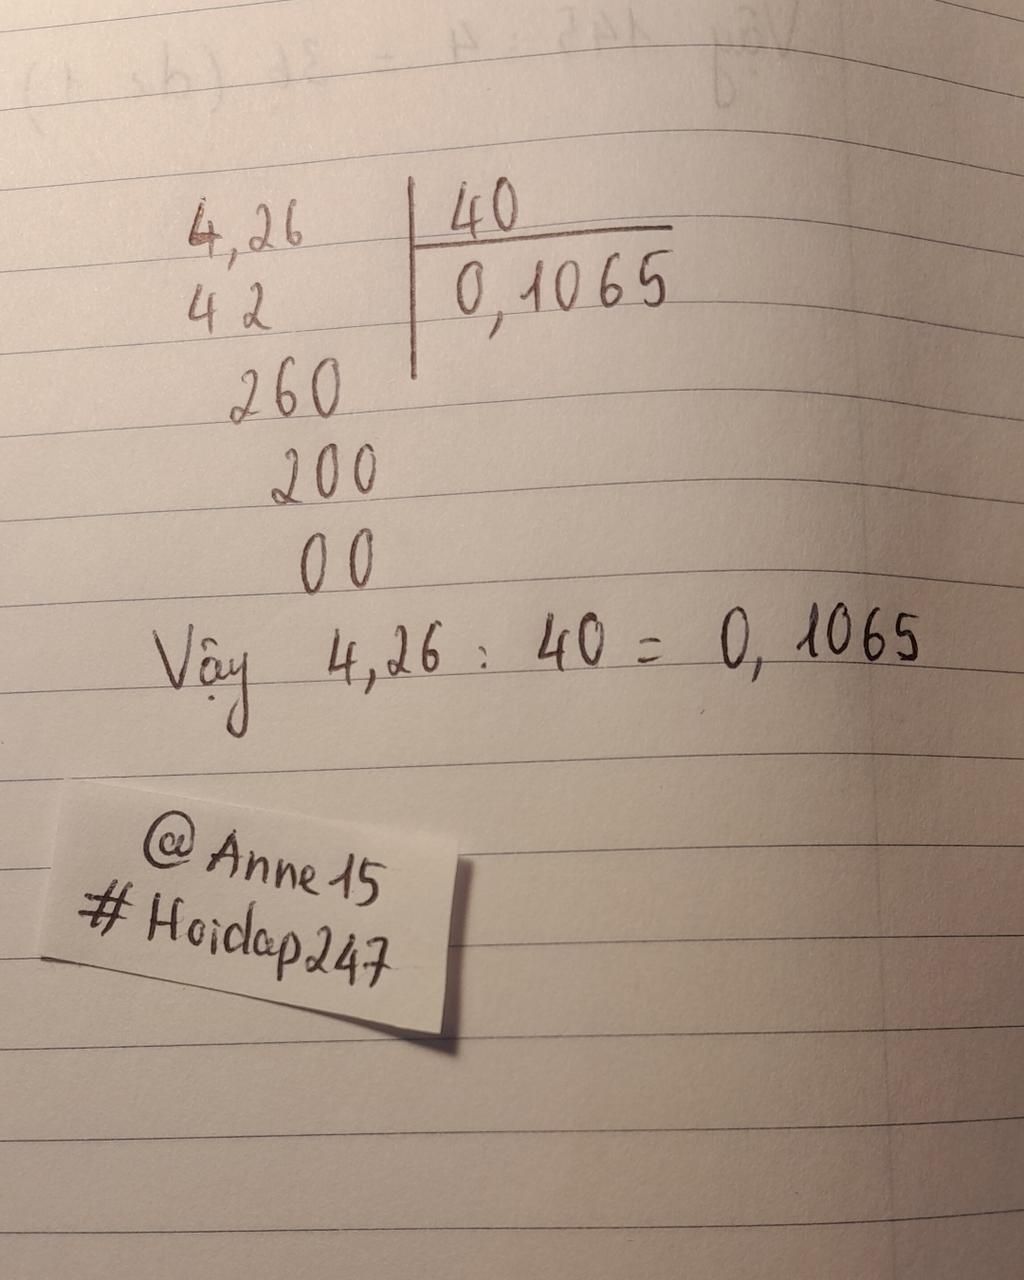 4,26 40
42 0,1065
260
200
00
Vậy 4,26 : 40 = 0,1065
@Anne15
#Hoidap247